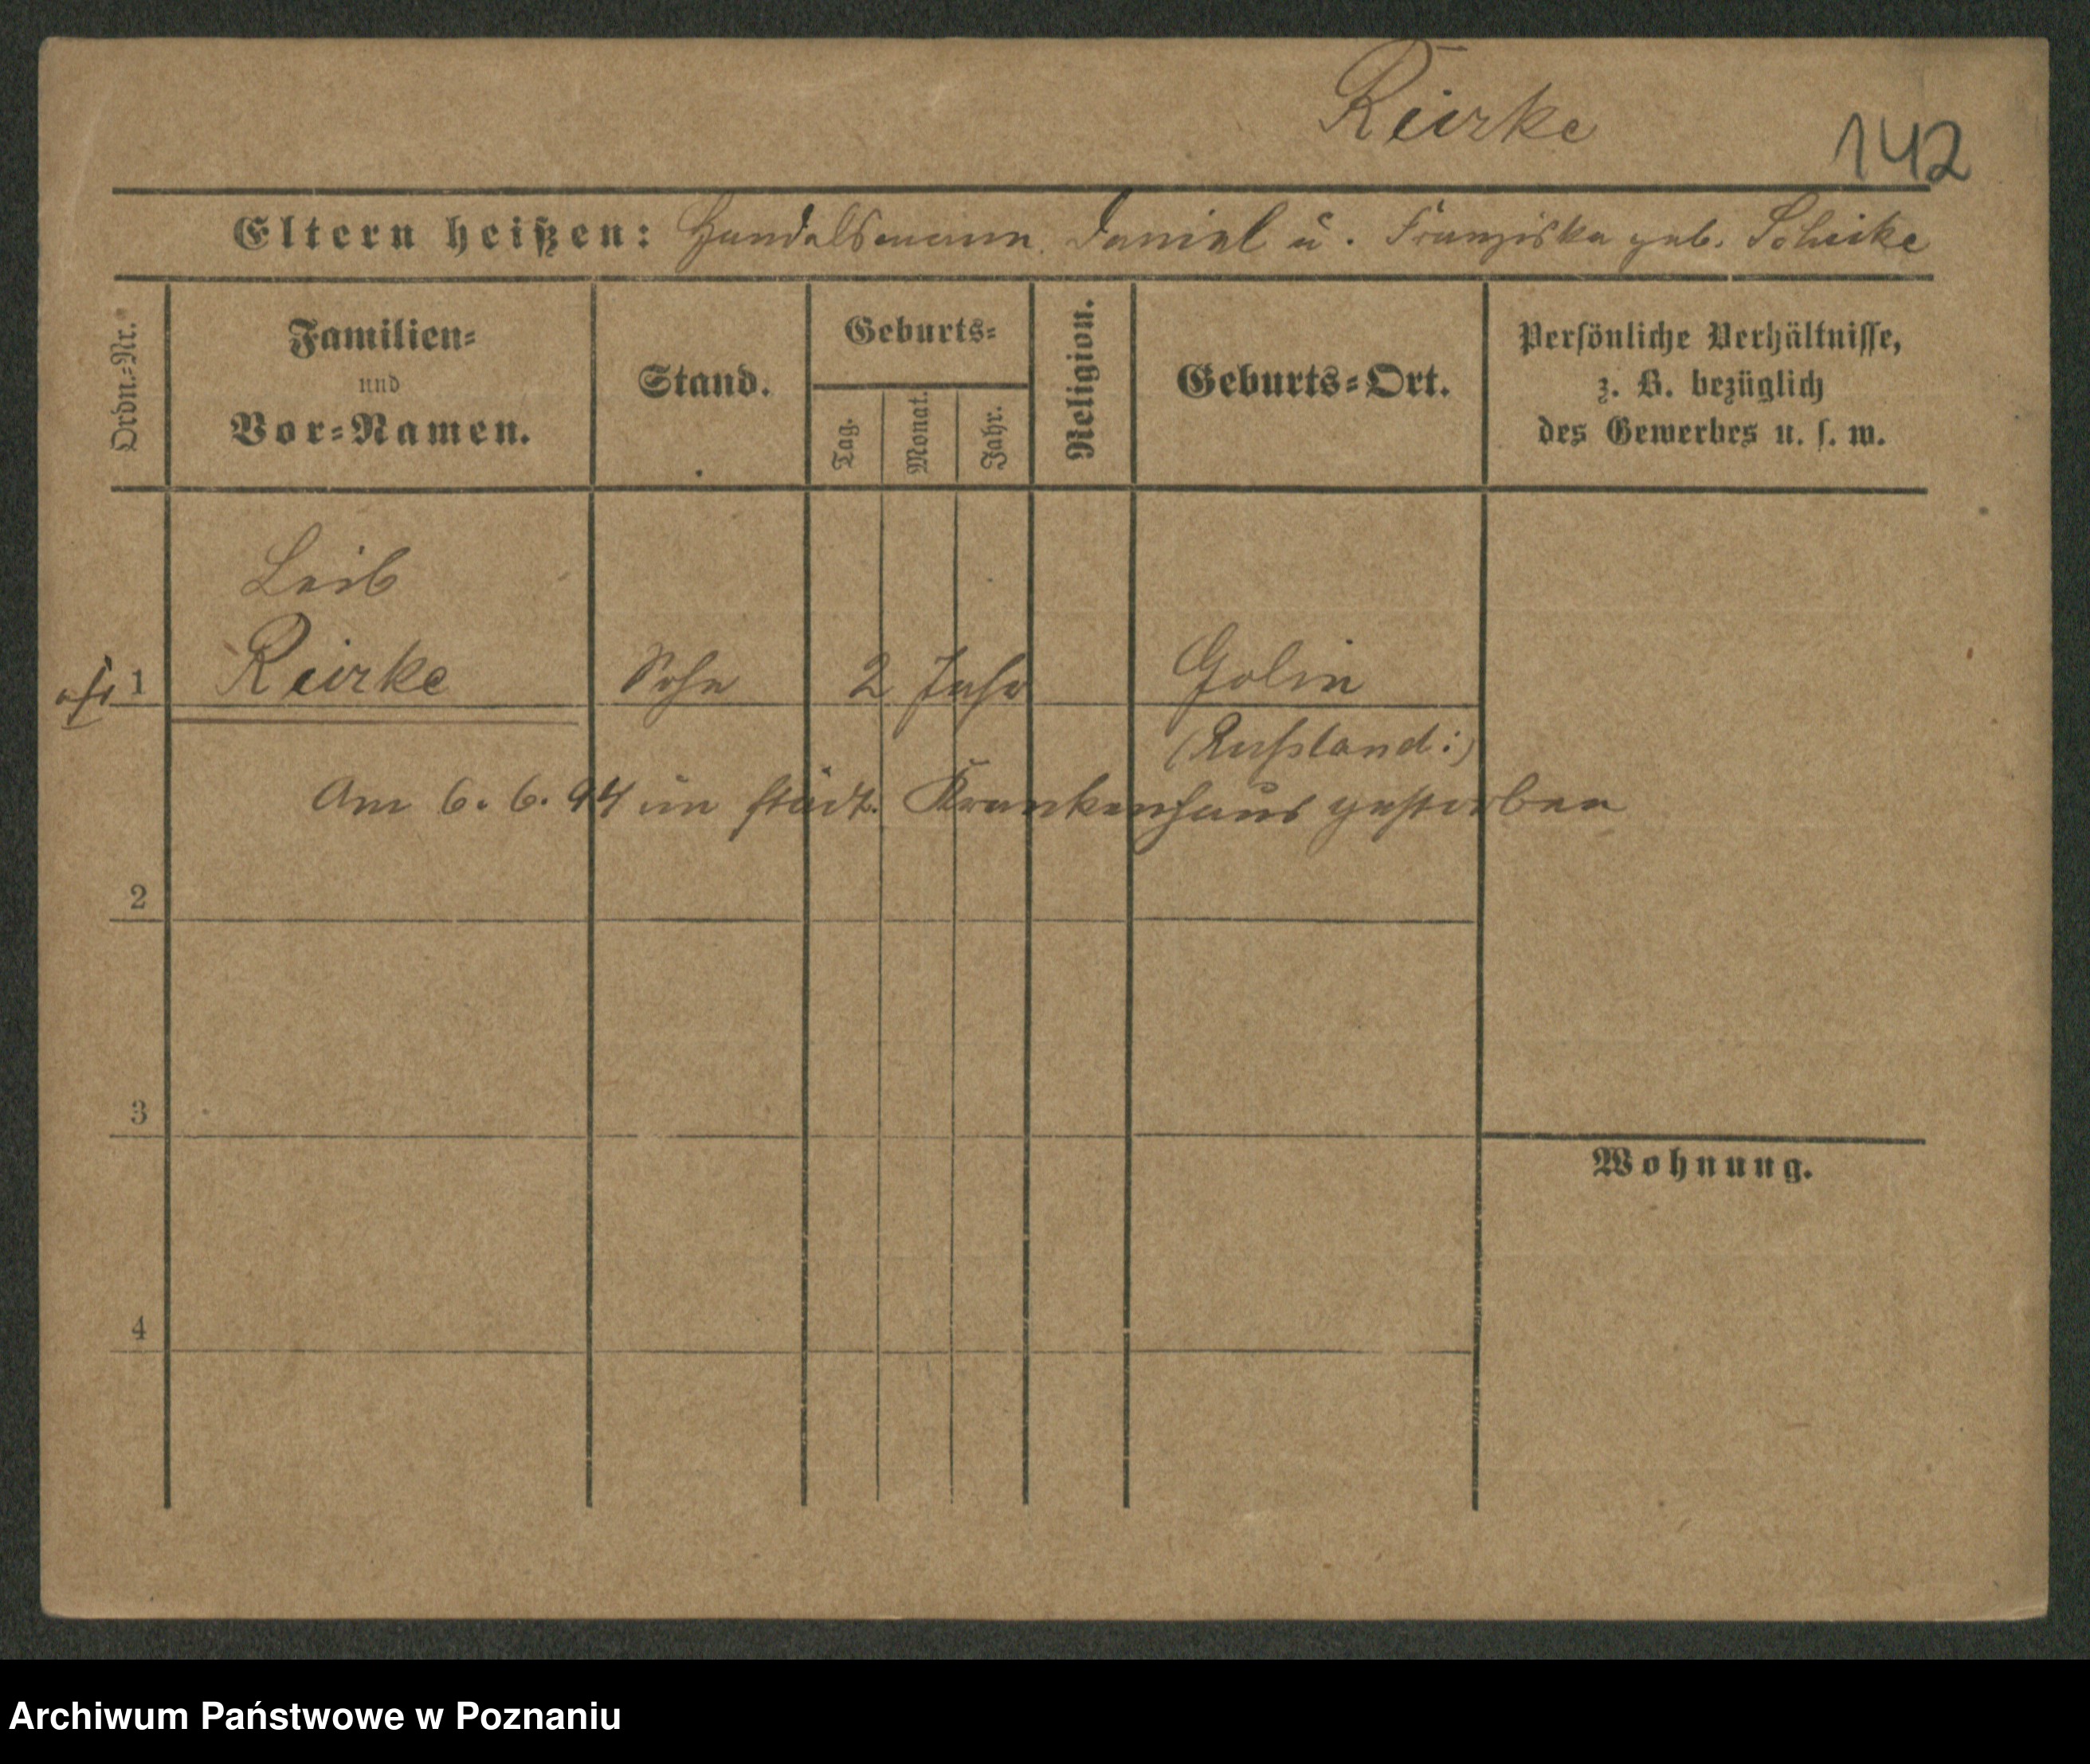 Reirke
142
Eltern heißen: Handelsmann Daniel u. Franziska geb. Schicke
Ordn.-Nr.
Familien-
und
Vor-Namen.
Stand.
Geburts-
Tag.
Monat.
Jahr.
Religion.
Geburts-Ort.
Persönliche Verhältnisse,
z. B. bezüglich
des Gewerbes u. s. w.
Leib
1 Reirke Sohn 2 Jahr Golin
(Rußland:)
Am 6. 6. 94 im städt. Krankenhaus gestorben
2
3
Wohnung.
4
Archiwum Państwowe w Poznaniu